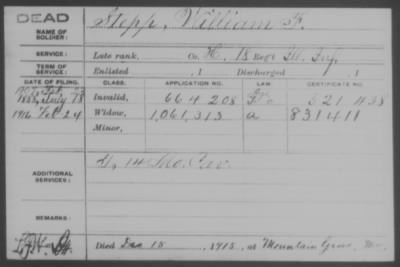 DEAD
NAME OF SOLDIER: Stepp, William F.
SERVICE: Late rank, Co. H, 18 Reg't Ill. Inf.
TERM OF SERVICE: Enlisted , 1 Discharged , 1
DATE OF FILING. CLASS. APPLICATION NO. LAW CERTIFICATE NO.
1888, July 18 Invalid, 664 208 521 438
1916 Feb 24 Widow, 1,061,313 a 831411
Minor,
ADDITIONAL SERVICES: H, 14 Mo. Cav.
REMARKS:
Died Dec 15, 1915, at Mountain Grove, Mo.